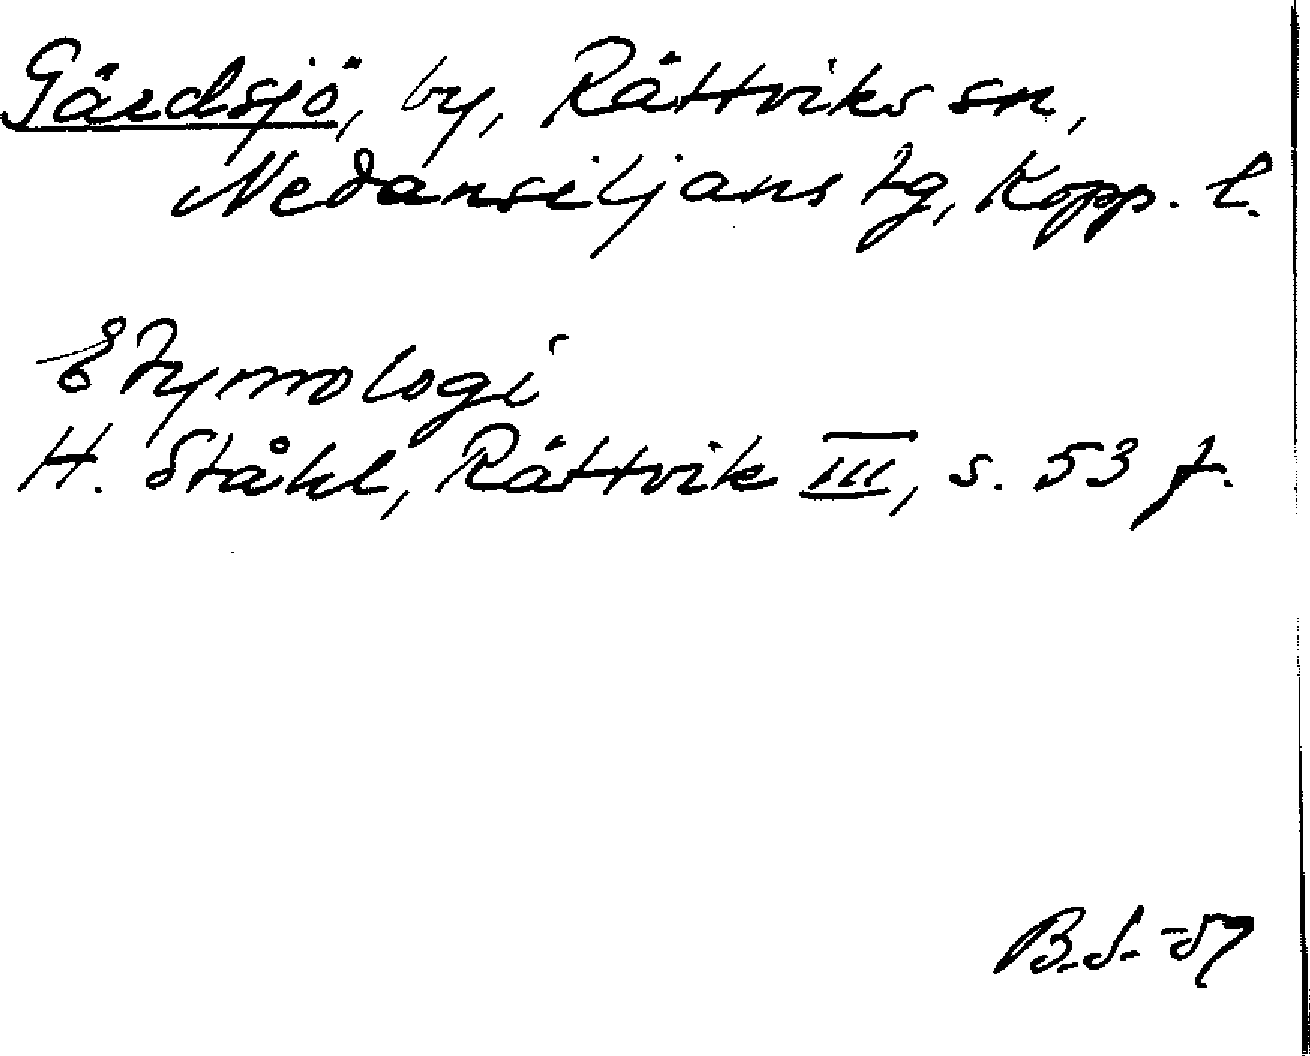 Gärdsjö, by, Rättviks sn,
Nedansiljans tg, Kopp. l.
Etymologi
H. Ståhl, Rättvik III, s. 53 f.
B.S. -57